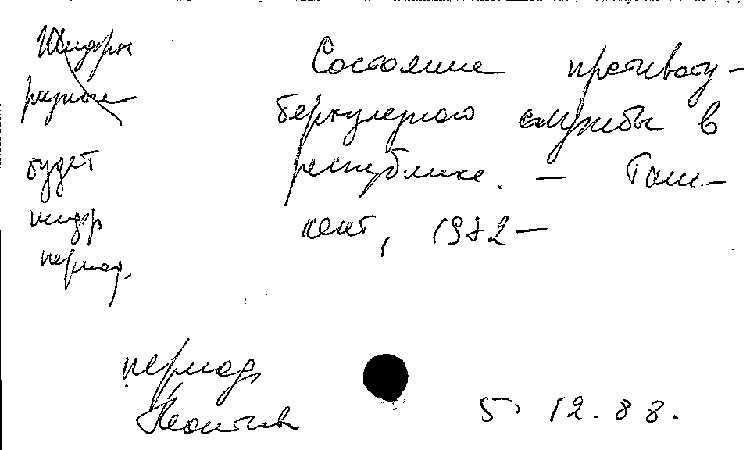 Шифры
разные
будет
шифр
период.
Состояние противоту-
беркулезного службы в
республике. - Таш-
кент, 1972-
период
5. 12. 88.